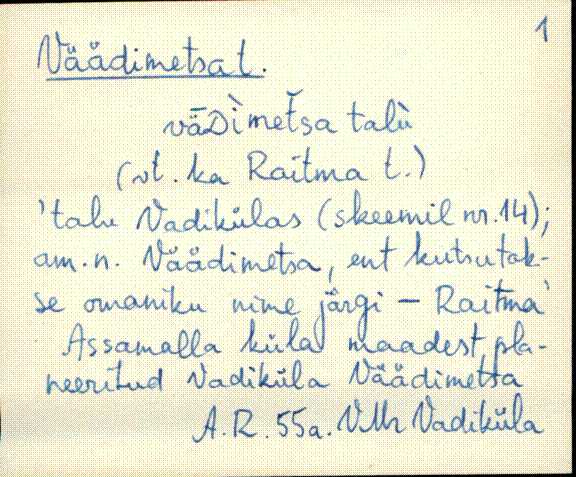 1
Väädimetsa t.
vāDì̬metsa talù
(vt. ka Raitma t.)
'talu Vadikülas (skeemil nr. 14);
am. n. Väädimetsa, ent kutsutak-
se omaniku nime järgi – Raitma'
Assamalla küla maadest pla-
neeritud Vadiküla Väädimetsa
A. R. 55a. VMr Vadiküla